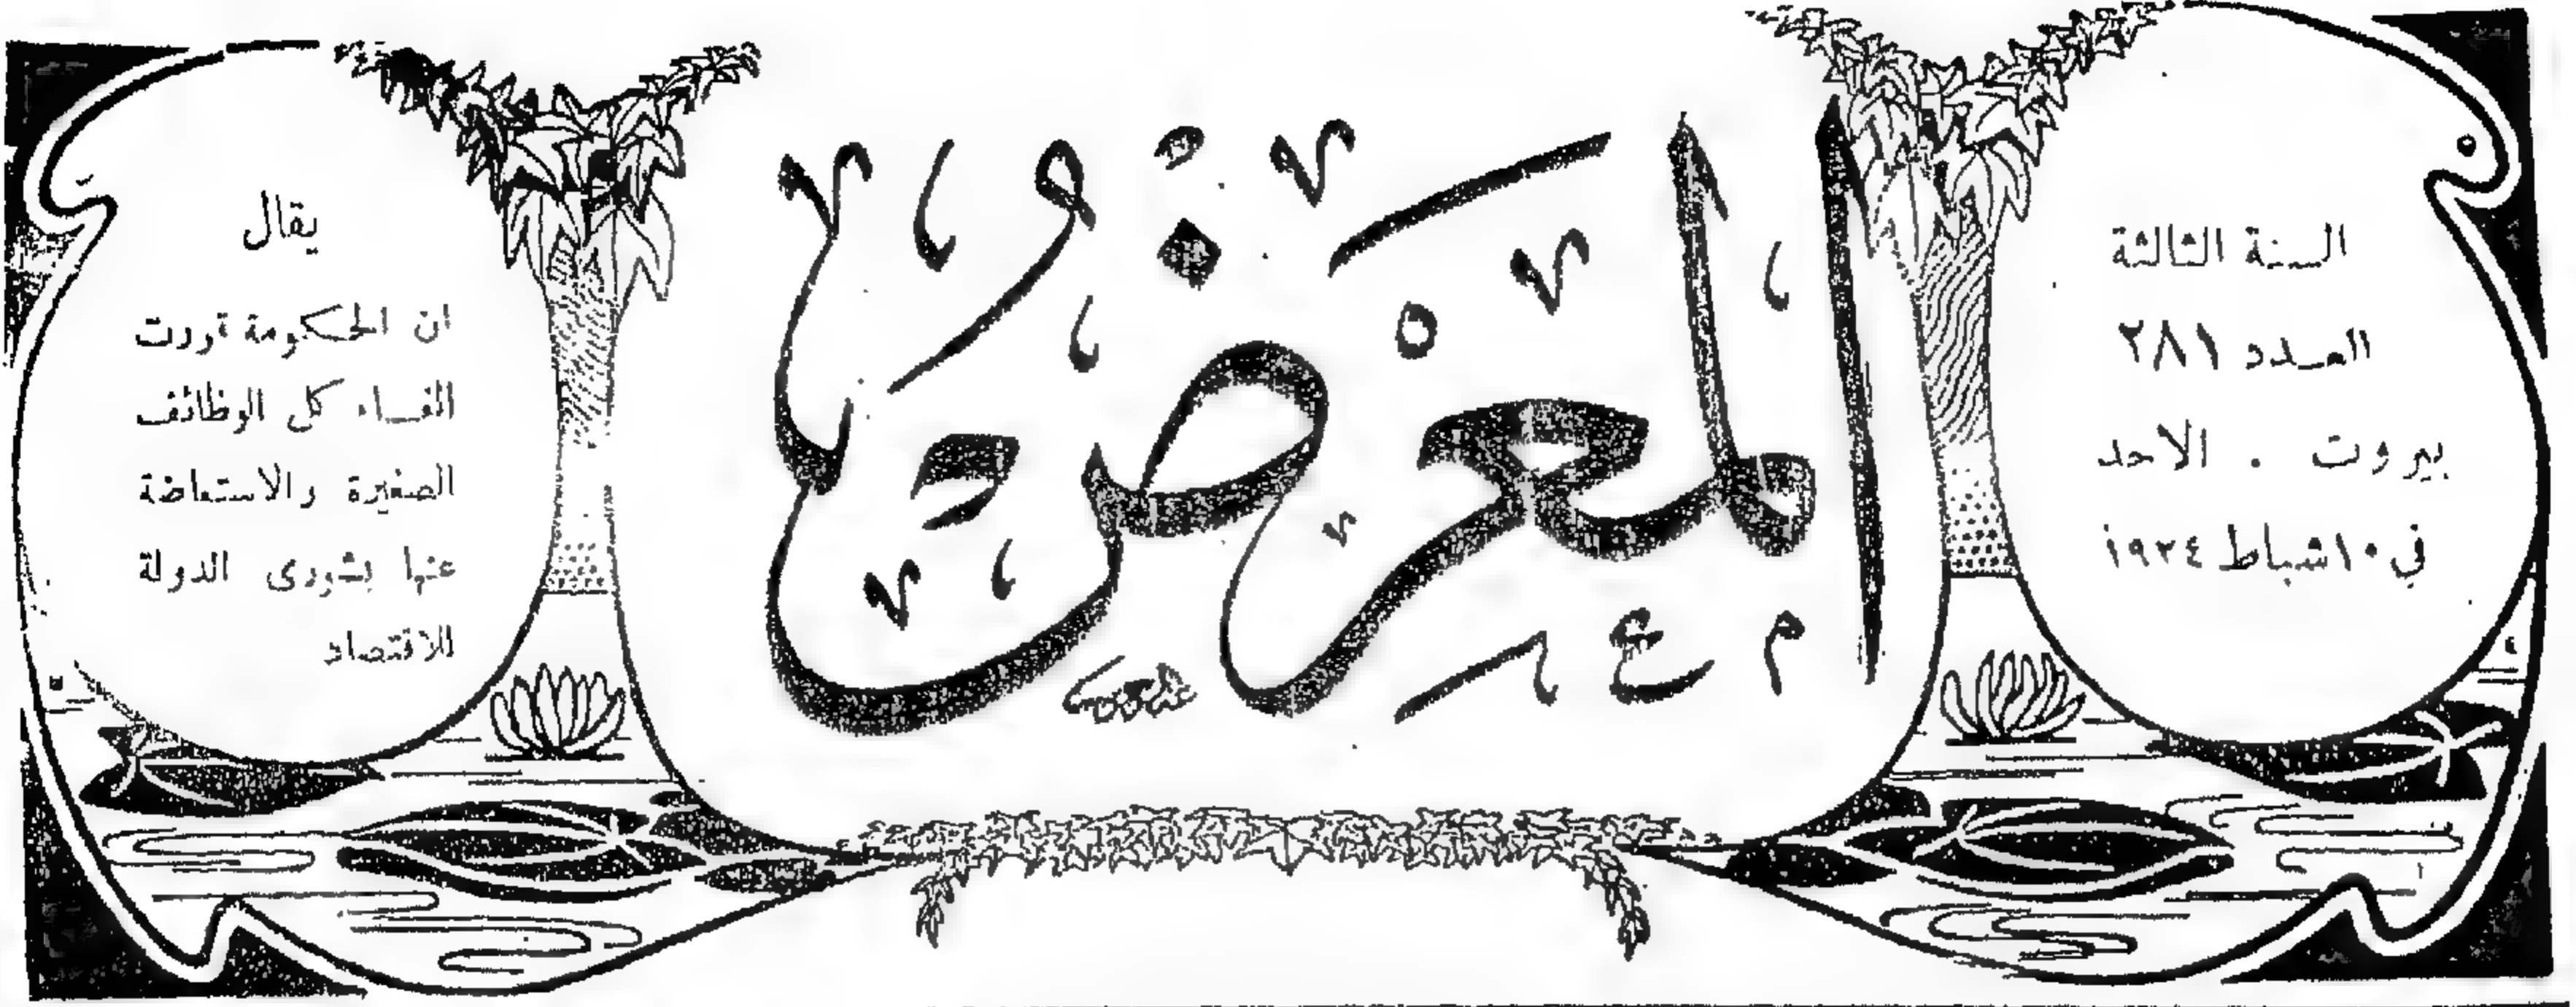 السنة الثالثة
العدد ٢٨١
بيروت . الاحد
في ١٠ شباط ١٩٢٤
المعرض
يقال
ان الحكومة قررت
الغاء كل الوظائف
الصغيرة والاستعاضة
عنها بشورى الدولة
للاقتصاد